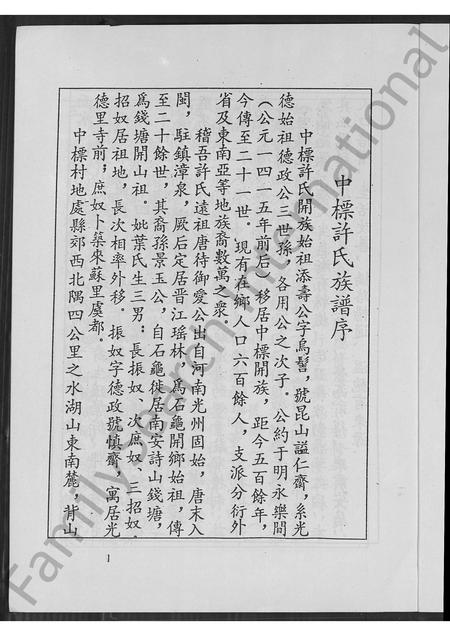 中標許氏族譜序
中標許氏開族始祖添壽公字烏髻，號昆山謚仁齋，系光
德始祖德政公三世孫，各用公之次子。公約于明永樂間
（公元一四一五年前后）移居中標開族，距今五百餘年，
今傳至二十一世。現有在鄉人口六百餘人，支派分衍外
省及東南亞等地族裔數萬之衆。
稽吾許氏遠祖唐待御愛公出自河南光州固始，唐末入
閩，駐鎮漳泉，厥后定居晋江瑶林，爲石龜開鄉始祖，傳
至二十餘世，其裔孫景玉公，自石龜徙居南安詩山錢塘，
爲錢塘開山祖。妣葉氏生三男：長振奴、次庶奴、三招奴。
招奴居祖地，長次相率外移。振奴字德政號慎齋，寓居光
德里寺前；庶奴卜築來蘇里虞都。
中標村地處縣郊西北隅四公里之水湖山東南麓，背山
1
FamilySearch International